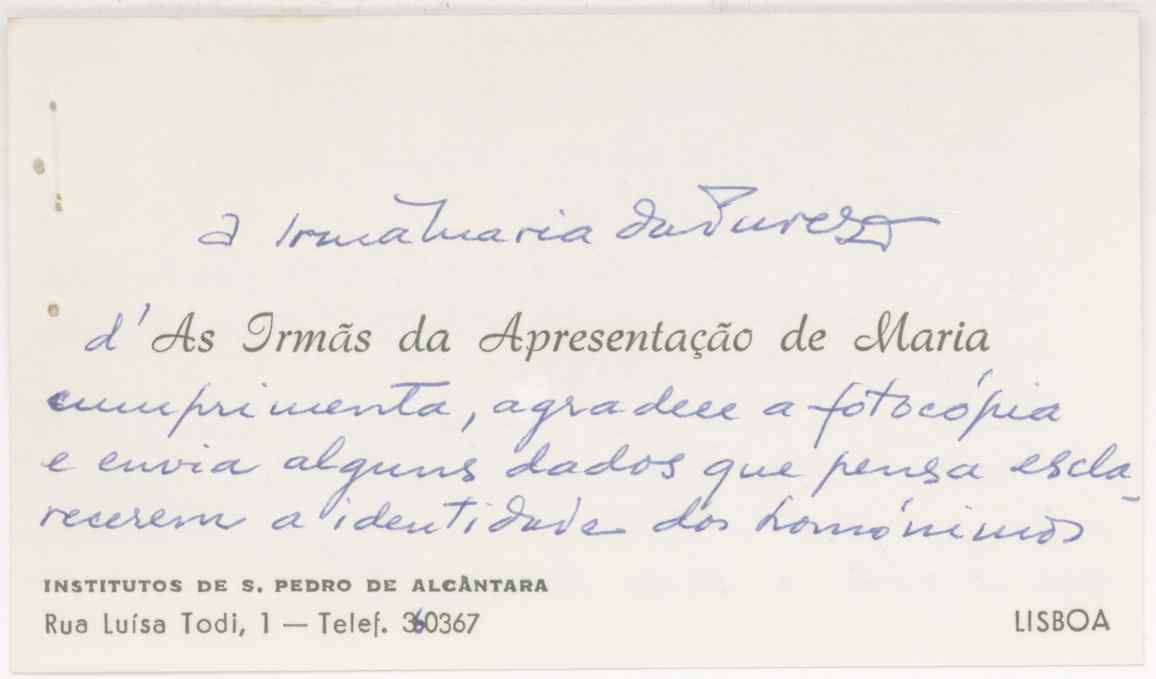 a Irmã Maria da Pureza
d' As Irmãs da Apresentação de Maria
cumprimenta, agradece a fotocópia
e envia alguns dados que pensa escla-
recerem a identidade dos homónimos
INSTITUTOS DE S. PEDRO DE ALCÂNTARA
Rua Luísa Todi, 1 — Telef. 360367
LISBOA